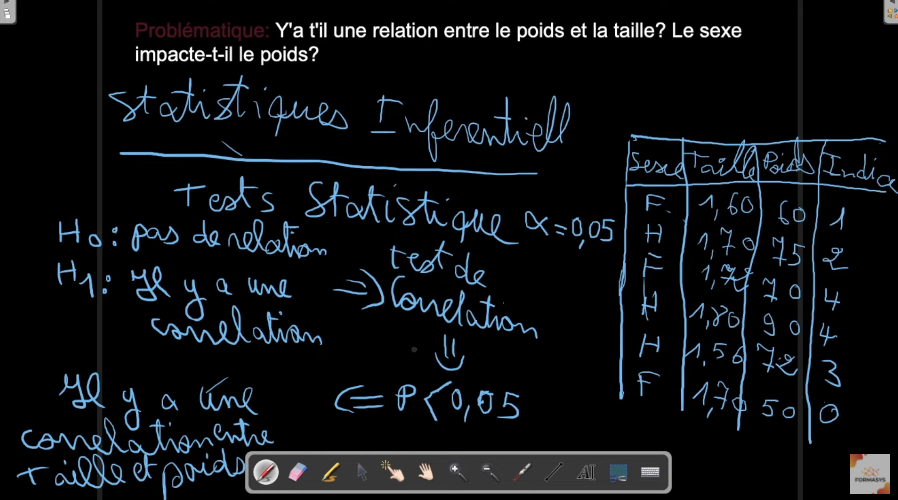 Problématique: Y'a t'il une relation entre le poids et la taille? Le sexe
impacte-t-il le poids?
Statistiques Inferentiell
Tests Statistique α = 0,05
H0 : pas de relation
H1 : Il y a une
correlation
=> test de
Correlation
<= P < 0,05
Il y a une
correlation entre
Taille et poids
Sexe Taille Poids Indice
F 1,60 60 1
H 1,70 75 2
F 70 4
H 1,80 90 4
H 1,56 72 3
F 1,70 50 0
AI
FORMASYS